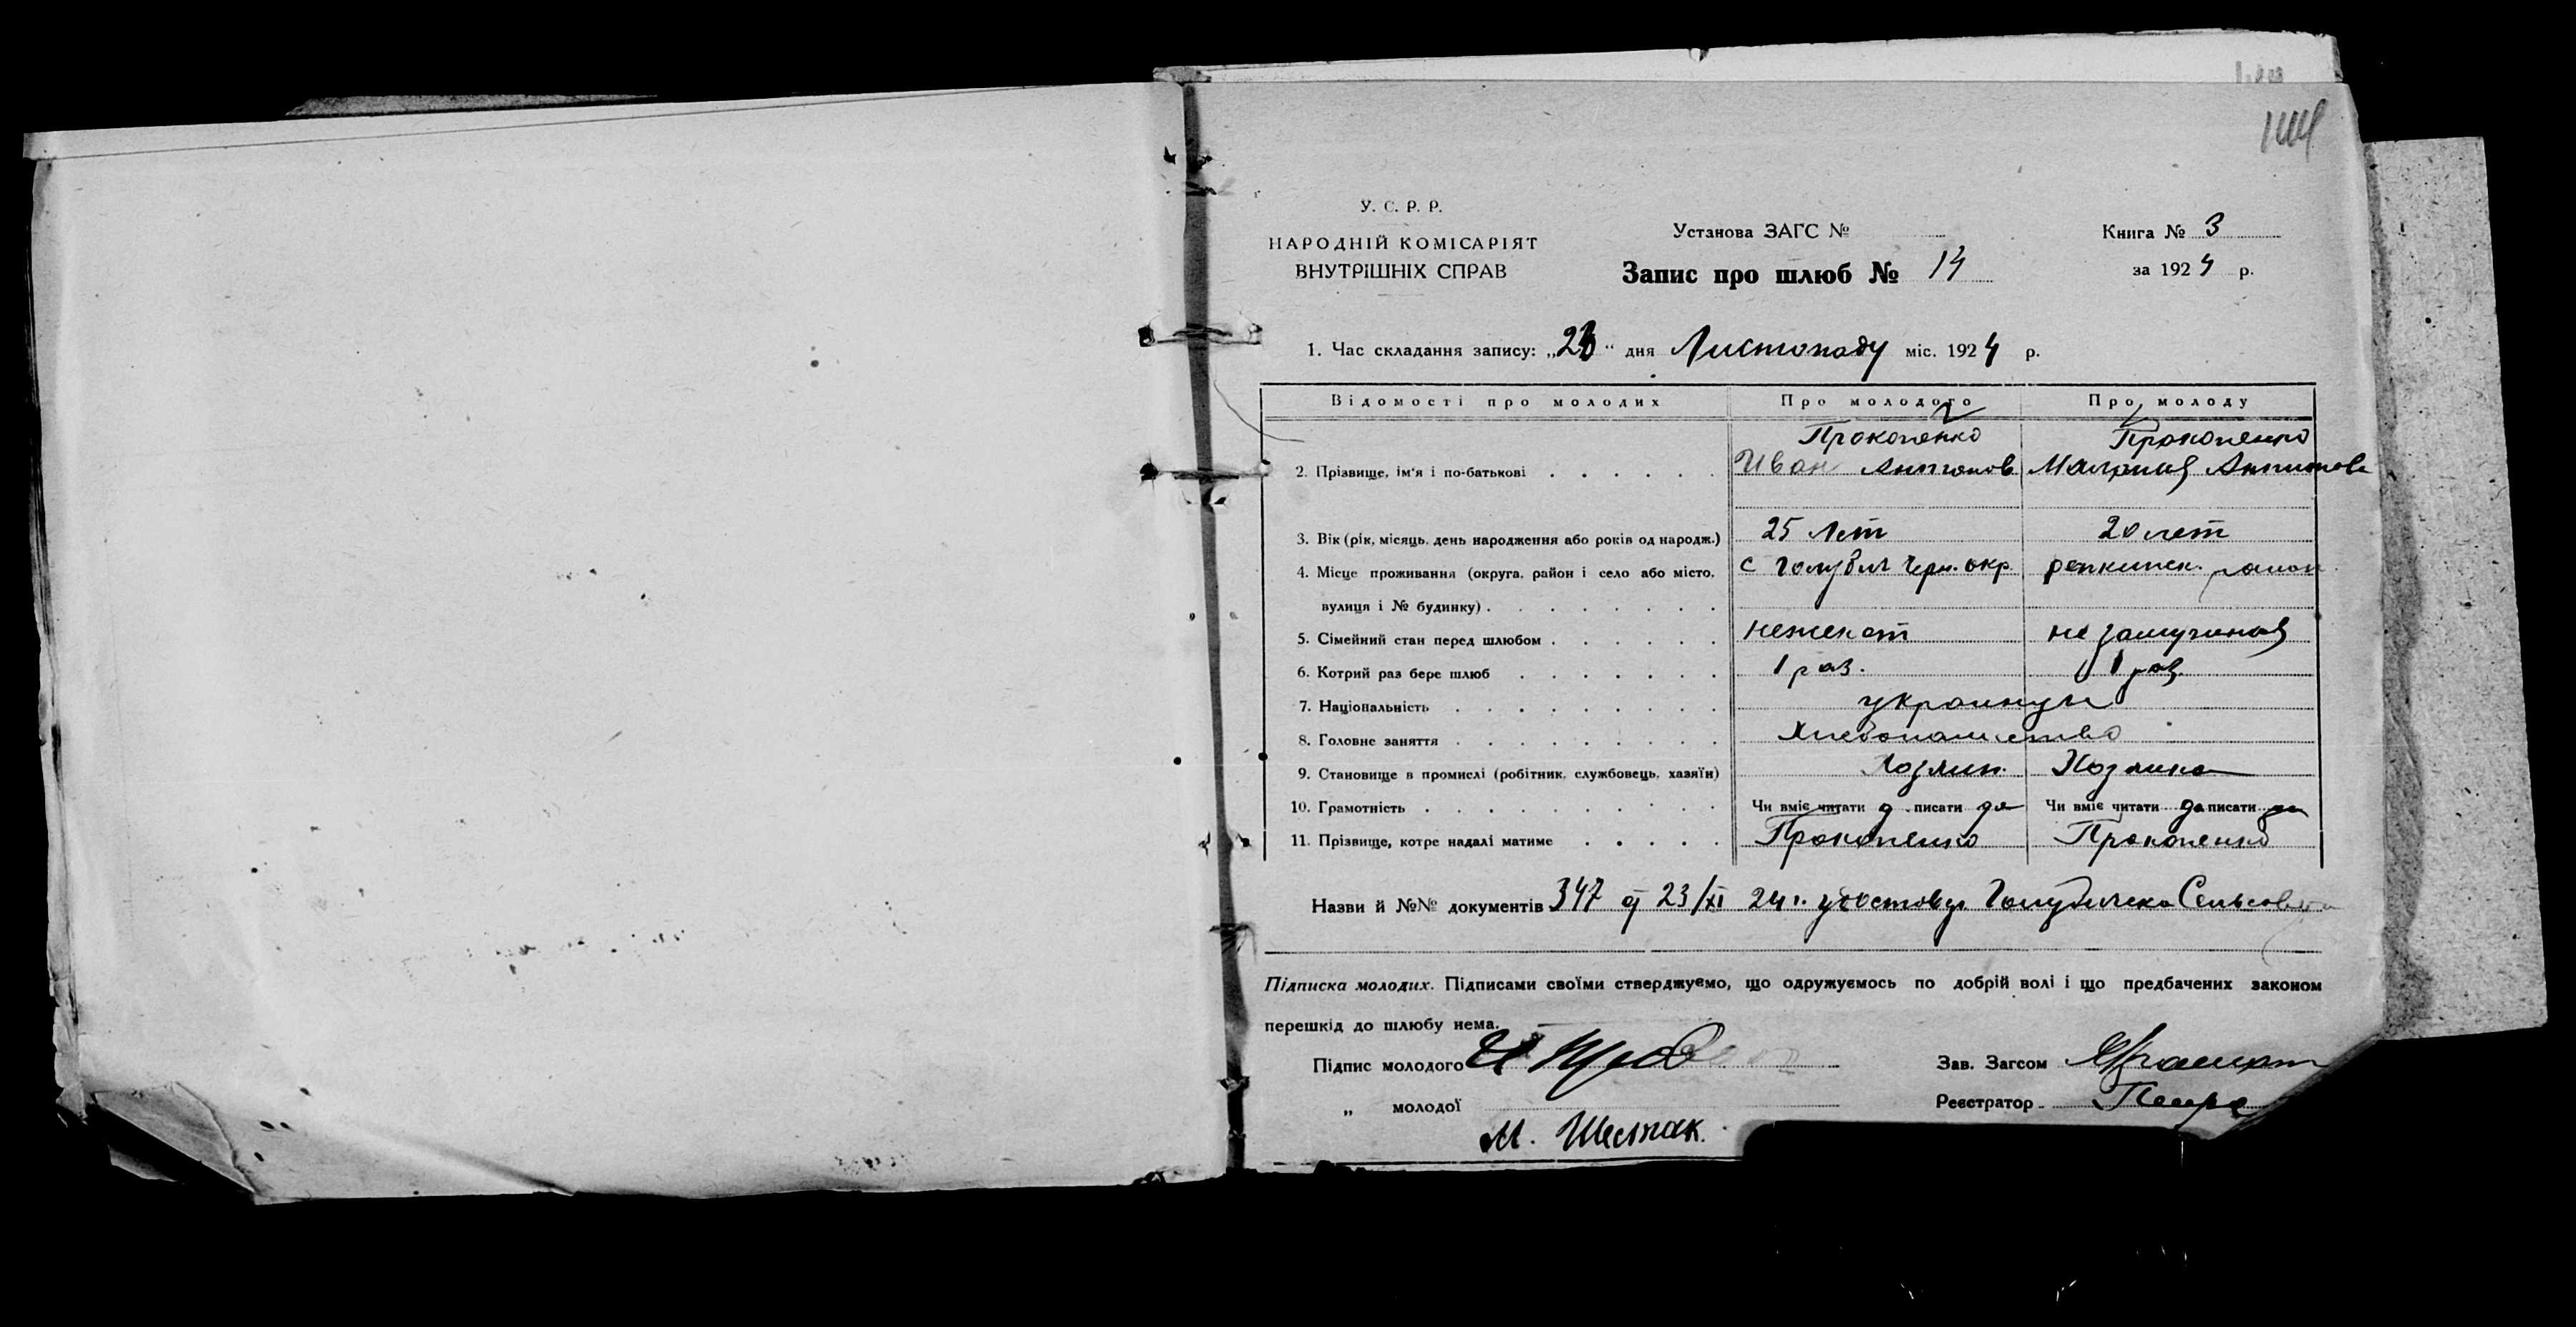 У. С. Р. Р.
НАРОДНІЙ КОМІСАРІЯТ
ВНУТРІШНІХ СПРАВ
Установа ЗАГС №
Запис про шлюб № 14
Книга № 3
за 1924 р.
1. Час складання запису: „23“ дня Листопаду міс. 1924 р.
Відомості про молодих Про молодого Про молоду
Прокопенко Прокопенко
2. Прізвище, ім'я і по-батькові Иван Антонов
3. Вік (рік, місяць, день народження або років од народж.) 25 лет 20 лет
4. Місце проживання (округа, район і село або місто, с Голубич Черн. окр. репкинск. район
вулиця і № будинку)
5. Сімейний стан перед шлюбом неженат не замужняя
6. Котрий раз бере шлюб 1 раз. 1 раз.
7. Національність украинцы
8. Головне заняття Хлебопашество
9. Становище в промислі (робітник, службовець, хазяїн)
10. Грамотність Чи вміє читати писати да Чи вміє читати да писати да
11. Прізвище, котре надалі матиме Прокопенко Прокопенко
Назви й №№ документів 347 от 23/XI 24 г.
Підписка молодих. Підписами своїми стверджуємо, що одружуємось по добрій волі і що предбачених законом
перешкід до шлюбу нема.
Підпис молодого
Зав. Загсом
„ молодої
Реєстратор
М. Шестак.